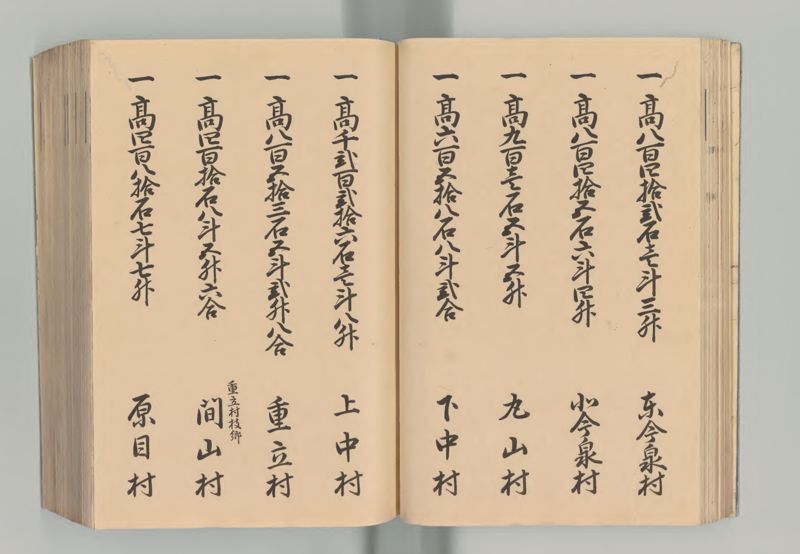 一 高八百四拾弐石壱斗三升 東今泉村
一 高八百四拾五石六斗四升 北今泉村
一 高九百壱石五斗五升 丸山村
一 高六百五拾八石八斗弐合 下中村
一 高千弐百弐拾六石壱斗八升 上中村
一 高八百五拾三石五斗弐升八合 重立村
重立村枝郷
一 高四百拾石八斗五升六合 間山村
一 高四百八拾石七斗七升 原目村